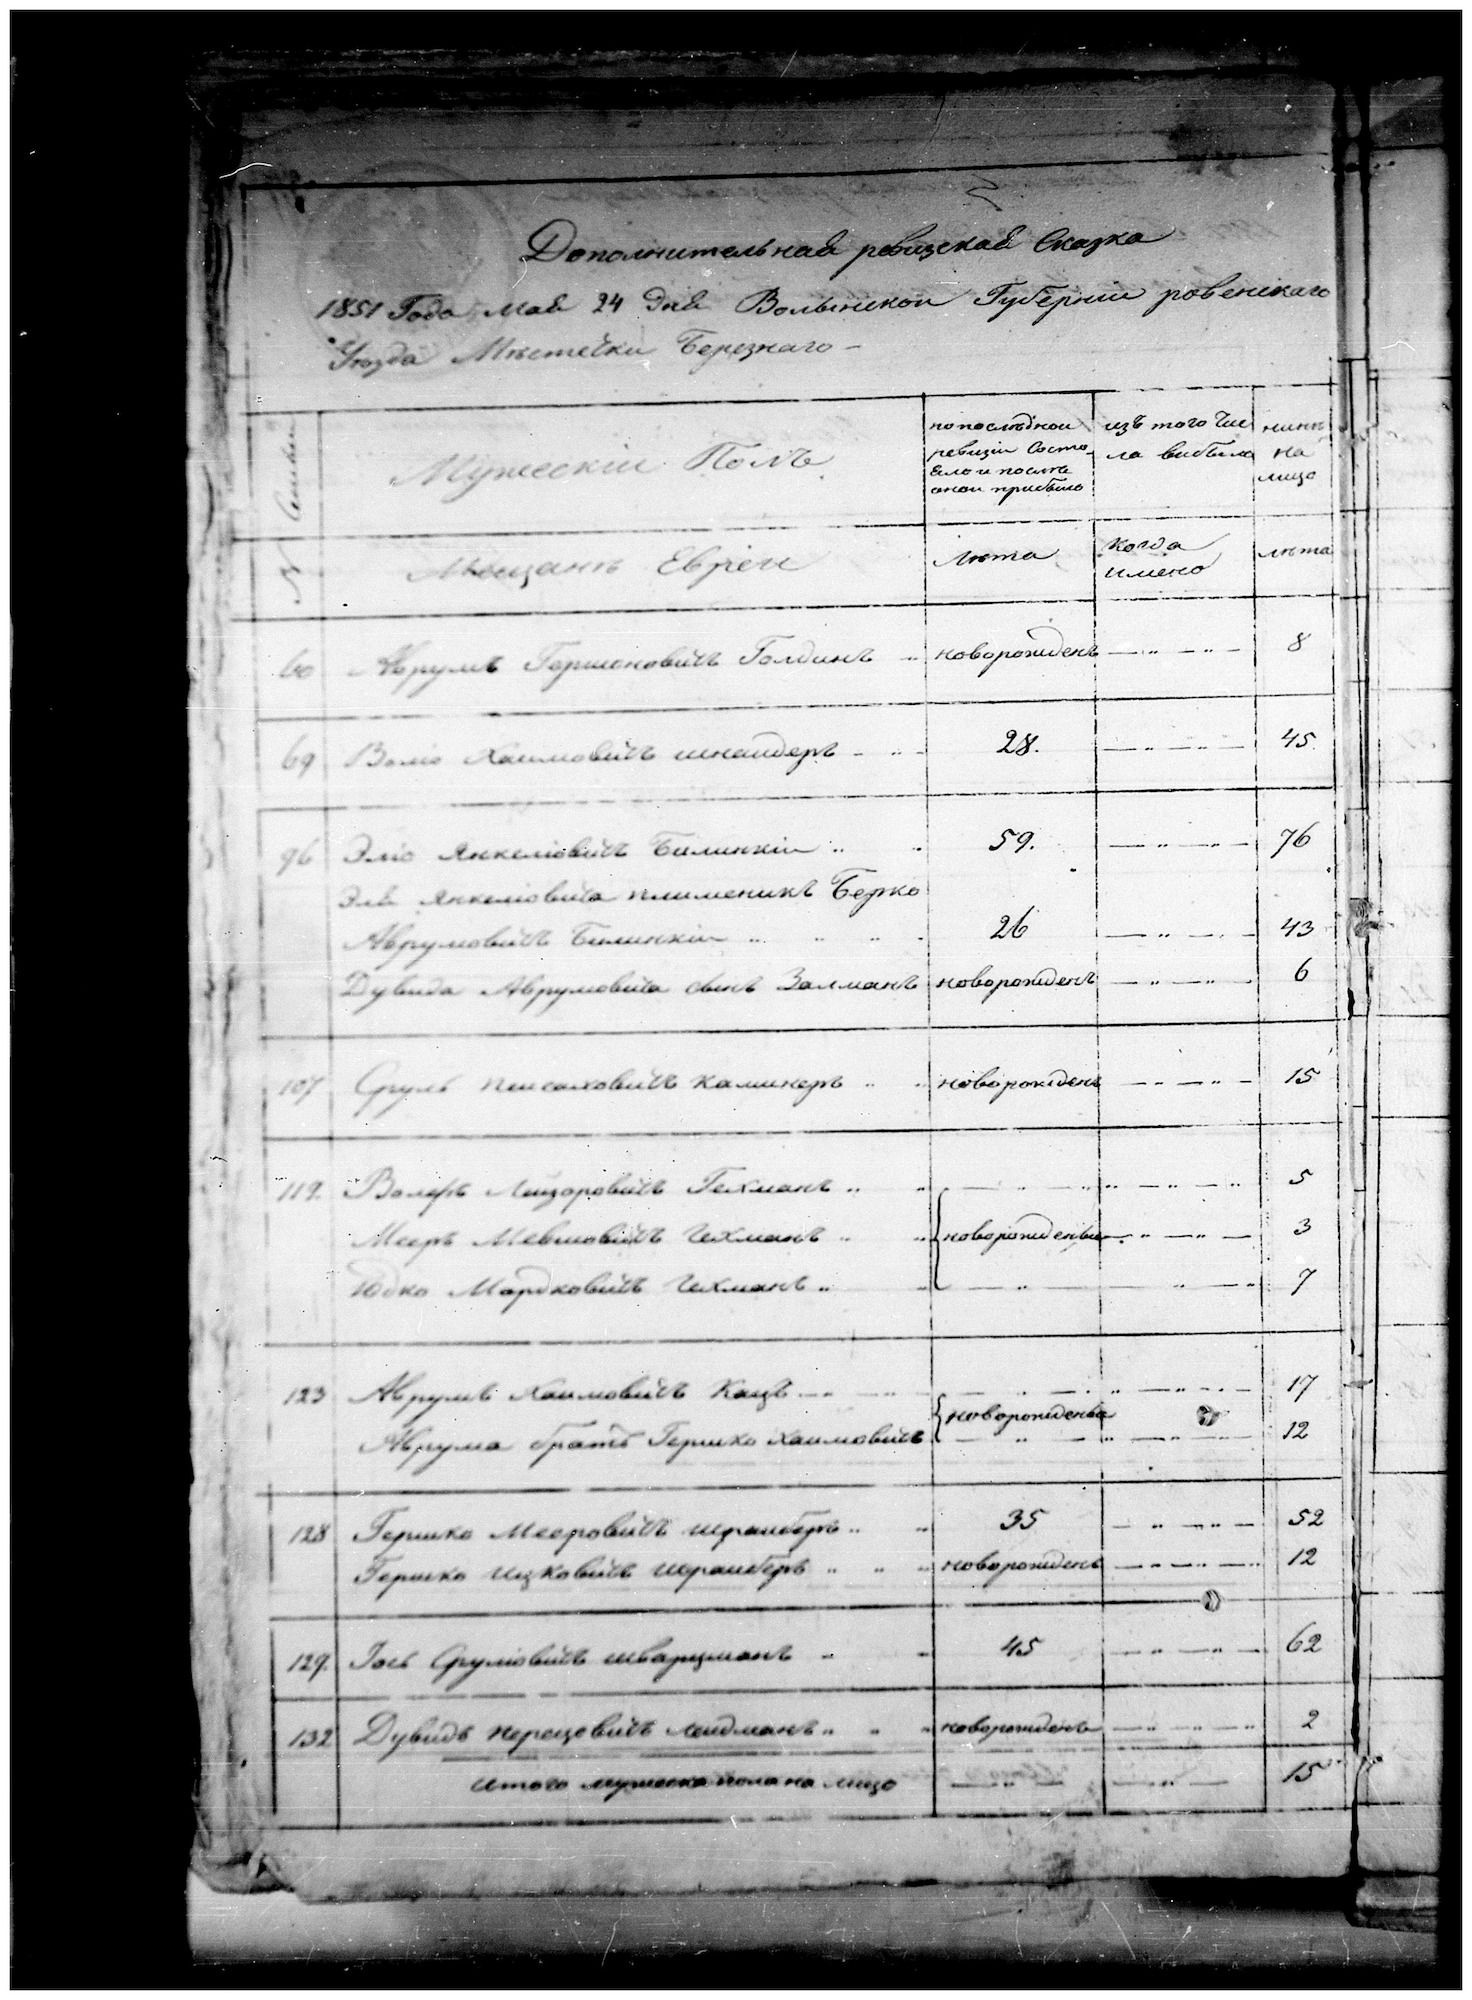 Дополнительная ревизская Сказка
1851 Года мая 24 дня Волынской Губерніи ровенскаго
Уезда Местечки Березнаго -
№ Семьи
Мужескій Полъ
по последнои
ревизіи Состо
яло и после
онои прибыло
изъ того Чис
ла выбыло
нине
на
лицо
Мещане Евреи
лета
когда
имено
лета
60 Аврумъ Гершоновичъ Голдинъ новорожденъ 8
69 Волько Хаимовичъ шнаидеръ 28. 45
96 Эліо Янкеліовичъ Билинкіи 59. 76
Эля Янкеліовича племеникъ Берко
Аврумовичъ Билинкіи 26 43
Дувида Аврумовича сынъ Залманъ новорожденъ 6
107 Сруль пейсаховичъ каминеръ новорожденъ 15
119. Волеръ Лейзоровичъ Гехманъ 5
Мееръ Мевшовичъ Гехманъ новорожденые 3
Юдко Мардковичъ Гехманъ 7
123 Аврумъ Хаимовичъ Кацъ 17
новорожденые
Аврума братъ Гершко Хаимовичъ 12
128 Гершко Мееровичъ шраиберъ 35 52
Гершко Ицковичъ шраиберъ новорожденъ 12
129. Іось Сруліовичъ шварцманъ 45 62
132 Дувидъ перецовичъ Лейдманъ новорожденъ 2
Итого мужеска пола на лицо 15